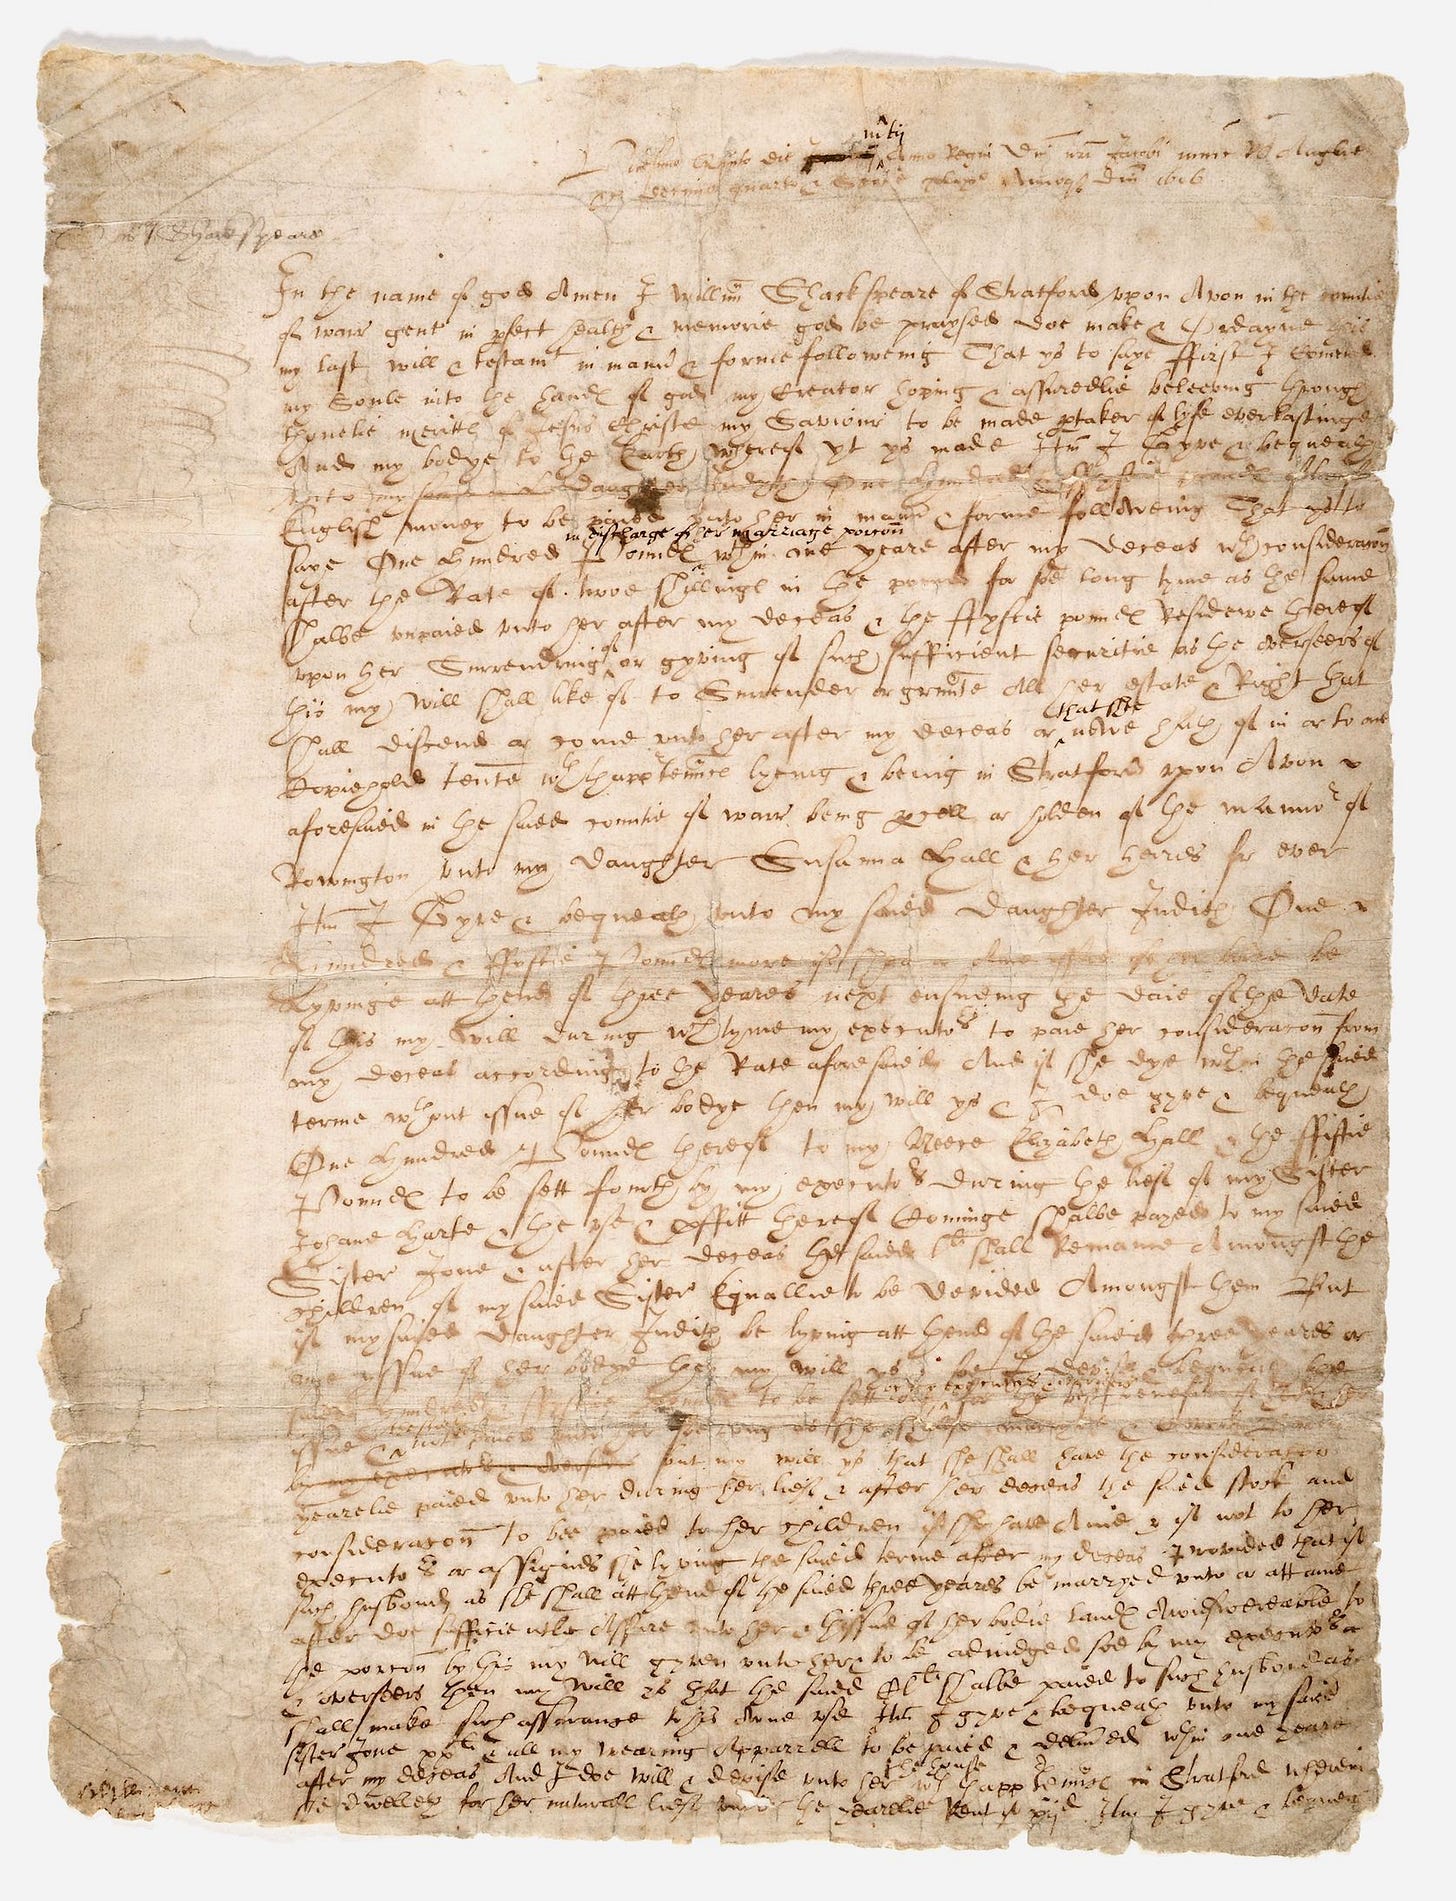 martii
Vicesimo Quinto die Januarii Anno Regni Dni nri Jacobi nunc R Anglie
&c decimo quarto & Scotie xlixo Annoqz Dni 1616
T Wmi Shackspeare
In the name of god Amen I Willim Shackspeare of Stratford vpon Avon in the countie
of warr gent in pfect health & memorie god be praysed doe make & Ordayne this
my last will & testamt in mannr & forme followeing That ys to saye ffirst I Comend
my Soule into the hands of god my Creator hoping & assuredlie beleeving through
thonelie merittes of Jesus Christe my Saviour to be made ptaker of lyfe everlastinge
And my bodye to the Earth whereof yt ys made Itm I Gyve & bequeath
vnto my sonne in L Daughter Judyth One Hundred & ffyftie pounds of lawfull
English money to be paied vnto her in mannr & forme followeing That ys to
in discharge of her marriage porcon
saye One Hundred Poundes wthin one yeare after my deceas wth consideracon
after the Rate of twoe shillinges in the pound for soe long tyme as the same
shalbe vnpaied vnto her after my deceas & the ffyftie poundes Residewe thereof
of
vpon her Surrendring or gyving of such sufficient securitie as the overseers of
this my Will shall like of to Surrender or graunte All her estate & Right that
that she
shall discend or come vnto her after my deceas or nowe hath of in or to one
Copiehold tente wth thappurtenncs lyeing & being in Stratford vpon Avon
aforesaied in the saied countie of warr being pcell or holden of the mannor of
Rowington vnto my daughter Susanna Hall & her heires for ever
Itm I Gyve & bequeath vnto my saied Daughter Judith One
Hundred & ffyftie Poundes more if shee or Anie issue of her bodie be
Lyvinge att thend of three Yeares next ensueing the daie of the date
of this my Will during wch tyme my executors to paie her consideracon from
my deceas according to the Rate aforesaied And if she dye wthin the saied
terme wthout issue of her bodye then my will ys & I doe gyve & bequeath
One Hundred Poundes thereof to my Neece Elizabeth Hall & the ffiftie
Poundes to be sett fourth by my executors during the lief of my Sister
Johane Harte & the vse & pffitt thereof Cominge shalbe payed to my saied
Sister Jone & after her deceas the saied Lli shall Remaine Amongst the
children of my saied Sister Equallie to be devided Amongst them But
if my saied daughter Judith be lyving att thend of the saied three Yeares or
anie yssue of her bodye then my will ys & soe I devise & bequeath the
by my executors & overseers
saied Hundred & ffyftie Poundes to be sett out for the best benefit of her &
her issue & the stock not to be paied vnto her soe long as she shalbe marryed & Covert Baron
by my executors & overseers but my will ys that she shall have the consideracon
yearelie paied vnto her during her lief & after her deceas the saied stock and
consideracon to bee paied to her children if she have Anie & if not to her
executors or assignes she lyving the saied terme after my deceas Provided that if
such husbond as she shall att thend of the saied three yeares be marryed vnto or att anie
after doe sufficientlie Assure vnto her & thissue of her bodie landes Awnswereable to
the porcon by this my will gyven vnto her & to be adiudged soe by my executors
& overseers then my will ys that the saied CLli shalbe paied to such husbond as
shall make such assurance to his owne vse Itm I gyve & bequeath vnto my saied
sister Jone XXli & all my wearing Apparrell to be paied & deliuered wthin one yeare
the house
after my deceas And I doe will & devise vnto her wth thappurtenncs in Stratford wherein
she dwelleth for her naturall lief vnder the yearelie Rent of xijd Itm I gyve & bequeath